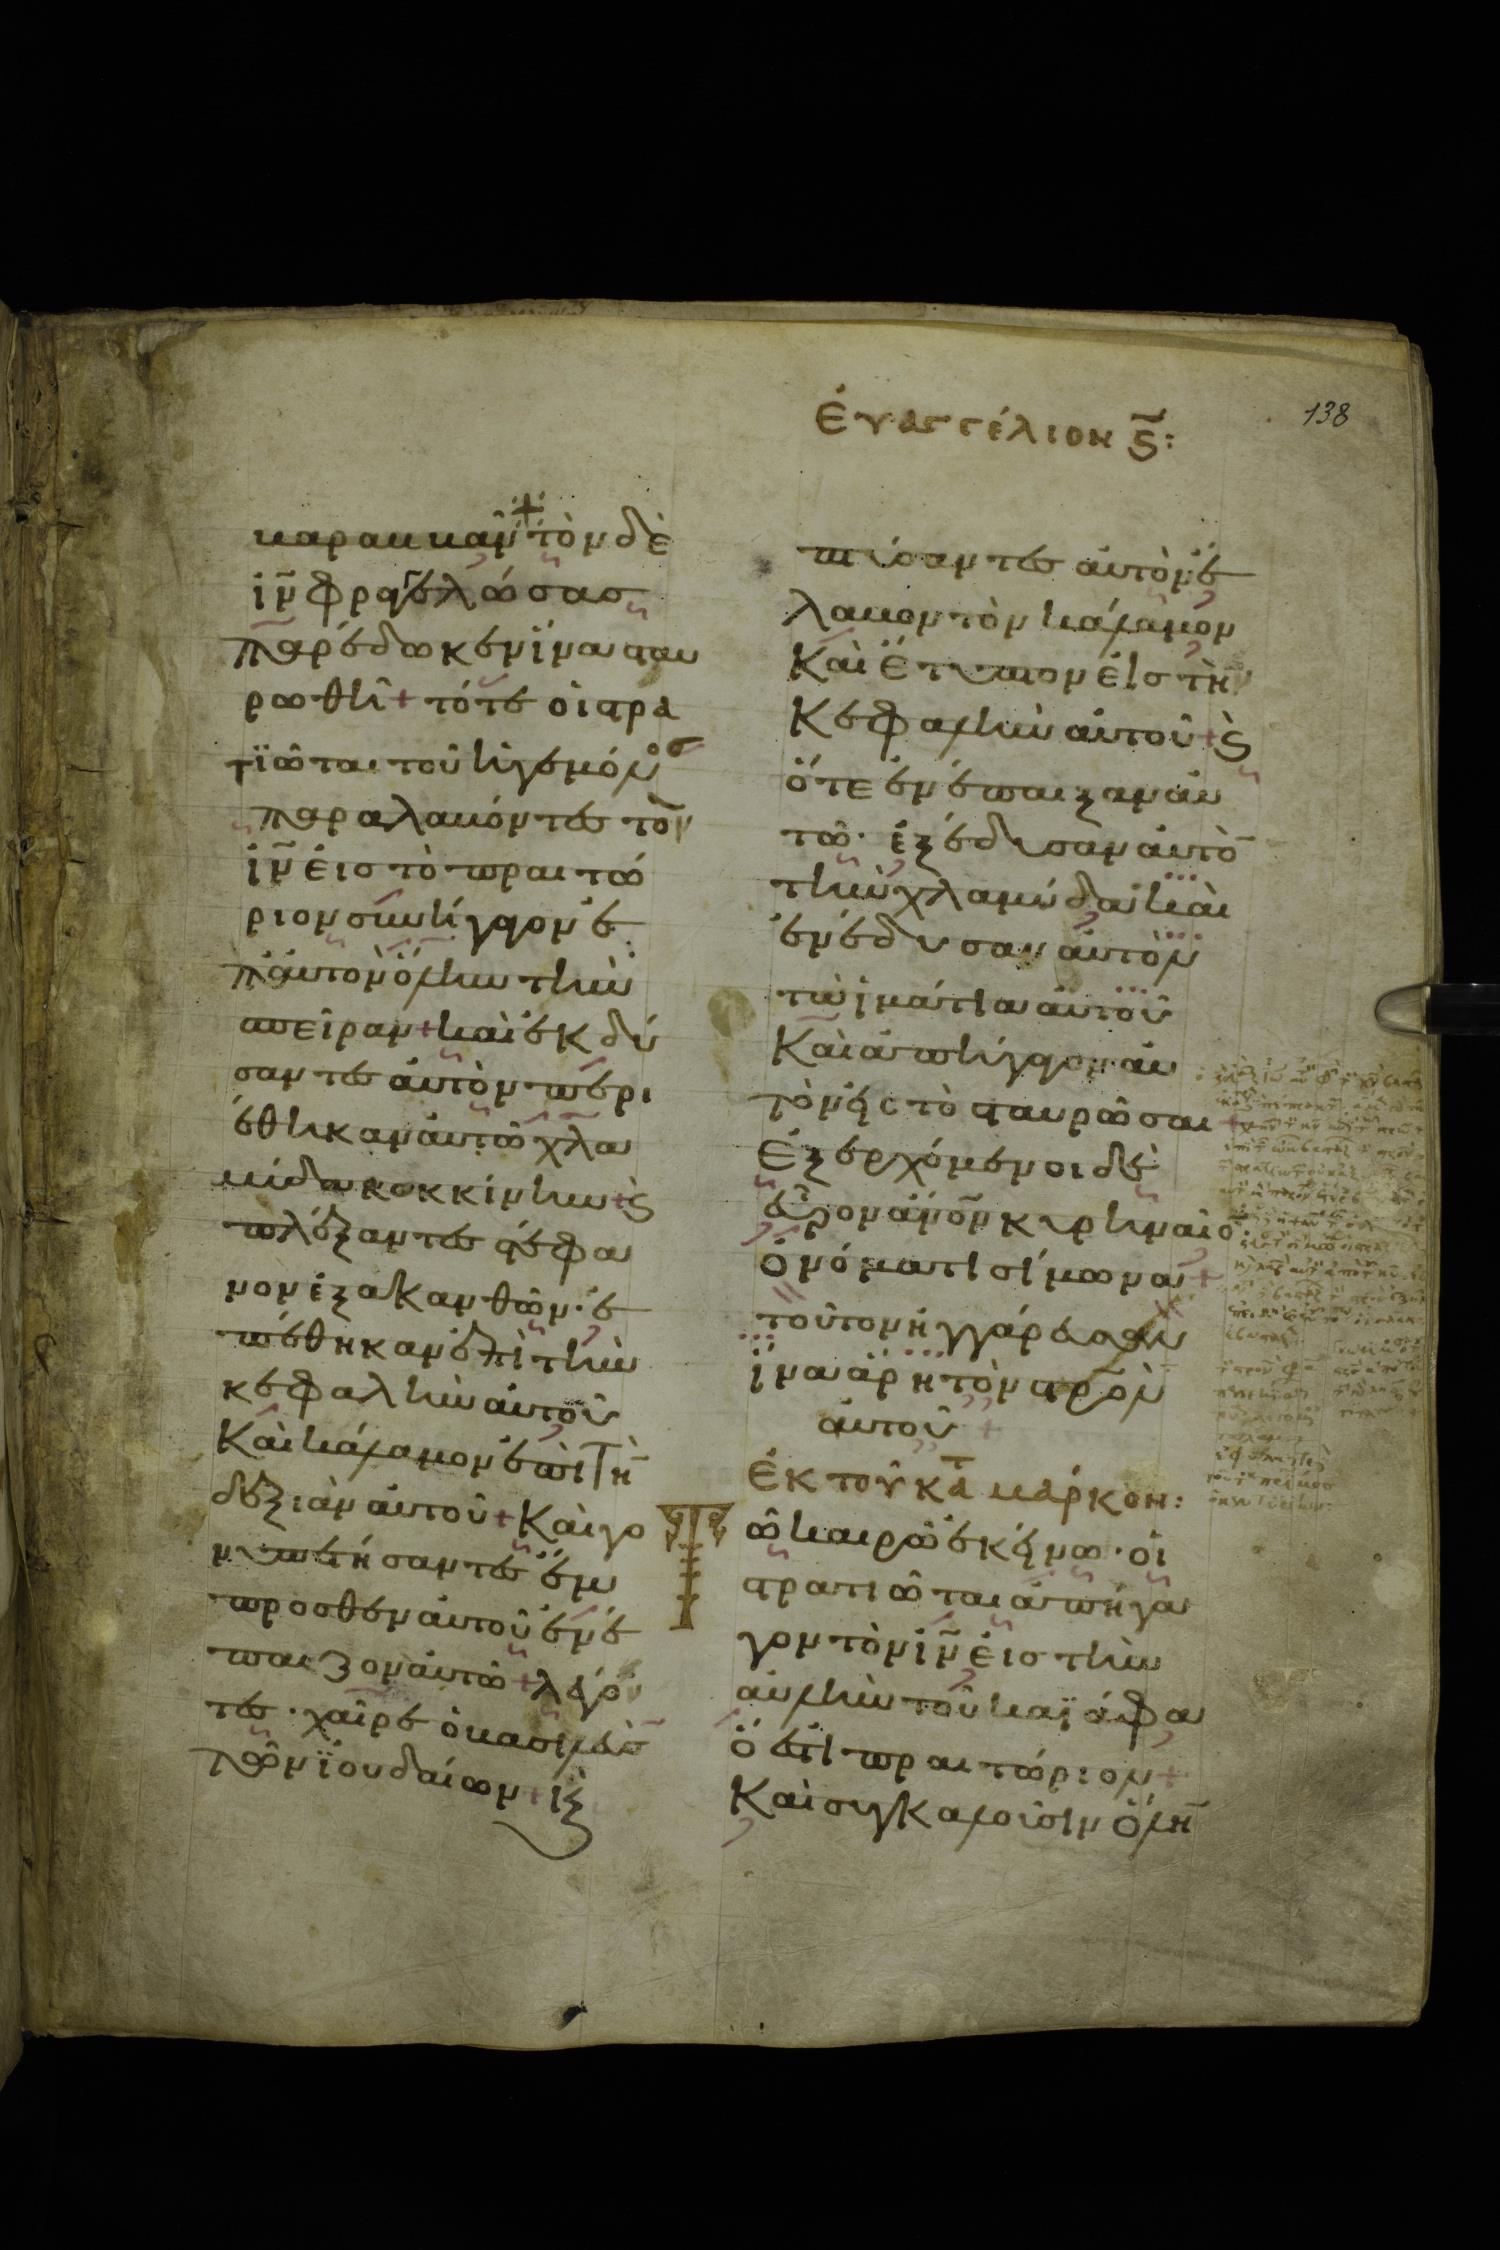 ἐυαγγέλιον ς̄:
138
βαραββᾶν τὸν δὲ
ἰ̅ν̅ φραγελλώσας
παρέδωκεν ἵνα σταυ
ρωθῆ + τότε οἱ στρα
τϊῶται τοῦ ἡγεμόνος
παραλαβόντες τὸν
ἰ̅ν̅ εἰς τὸ πραιτώ
ριον συνήγαγον ἐ
π αὐτὸν ὅλην τὴν
σπεῖραν + καὶ ἐκδύ
σαντες αὐτὸν περι
έθηκαν αὐτῶ χλα
μύδα κοκκίνην + ϗ
πλέξαντες στέφα
νον ἐξ ἀκανθῶν · ἐ
πέθηκαν ἐπὶ τὴν
κεφαλὴν αὐτοῦ
Καὶ κάλαμον ἐπὶ τὴ̅
δεξιὰν αὐτοῦ + Καὶ γο
νυπετήσαντες ἔμ
προσθεν αὐτοῦ ἐνέ
παιζον αὐτῶ + λέγον
τες · χαῖρε ὁ βασιλεὺς
τῶν ἰουδαίων + ϗ ἐμ
πτύσαντες αὐτὸν ἔ
λαβον τὸν κάλαμον
Καὶ ἔτυπτον εἰς τὴν
Κεφαλὴν αὐτοῦ + ϗ
ὅτε ἐνέπαιξαν αὐ
τῶ · ἐξέδυσαν αὐτὸ̅
τὴν χλαμύδα καὶ
ἐνέδυσαν αὐτὸν
τὰ ἱμάτια αὐτοῦ
Καὶ ἀπήγαγον αὐ
τὸν εἰς τὸ σταυρῶσαι +
Ἐξερχόμενοι δὲ
εὗρον ἄν̅ον̅ κυρηναῖο̅
ὀνόματι σίμωνα +
τοῦτον ἠγγάρευσαν
ἵνα ἄρη τὸν στρ̅ὸν
αὐτοῦ +
ἐκ τοῦ κατ μάρκον:
Τῶ καιρῶ ἐκείνω · οἱ
στρατιῶται ἀπήγα
γον τὸν ἰ̅ν̅ εἰς τὴν
αὐλὴν τοῦ καϊάφα
ὅ ἐστι πραιτώριον +
Καὶ συγκαλοῦσιν ὅλη̅